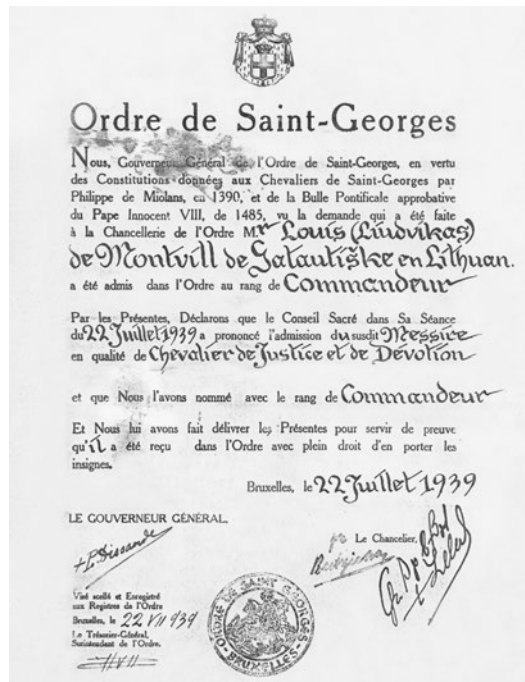 Ordre de Saint-Georges
Nous, Gouverneur Général de l'Ordre de Saint-Georges, en vertu
des Constitutions données aux Chevaliers de Saint-Georges par
Philippe de Miolans, en 1390, et de la Bulle Pontificale approbative
du Pape Innocent VIII, de 1485, vu la demande qui a été faite
à la Chancellerie de l'Ordre Mr Louis (Liudvikas)
de Montvill de Šatautiške en Lithuan.
a été admis dans l'Ordre au rang de Commandeur
Par les Présentes, Déclarons que le Conseil Sacré dans Sa Séance
du 22 Juillet 1939 a prononcé l'admission du susdit Messire
en qualité de Chevalier de Justice et de Dévotion
et que Nous l'avons nommé avec le rang de Commandeur
Et Nous lui avons fait délivrer les Présentes pour servir de preuve
qu'il a été reçu dans l'Ordre avec plein droit d'en porter les
insignes.
Bruxelles, le 22 Juillet 1939
LE GOUVERNEUR GÉNÉRAL,
Le Chancelier,
Visé scellé et Enregistré
aux Registres de l'Ordre
Bruxelles, le 22 VII 939
Le Trésorier-Général,
Surintendant de l'Ordre,
ORDRE DE SAINT GEORGES
BRUXELLES